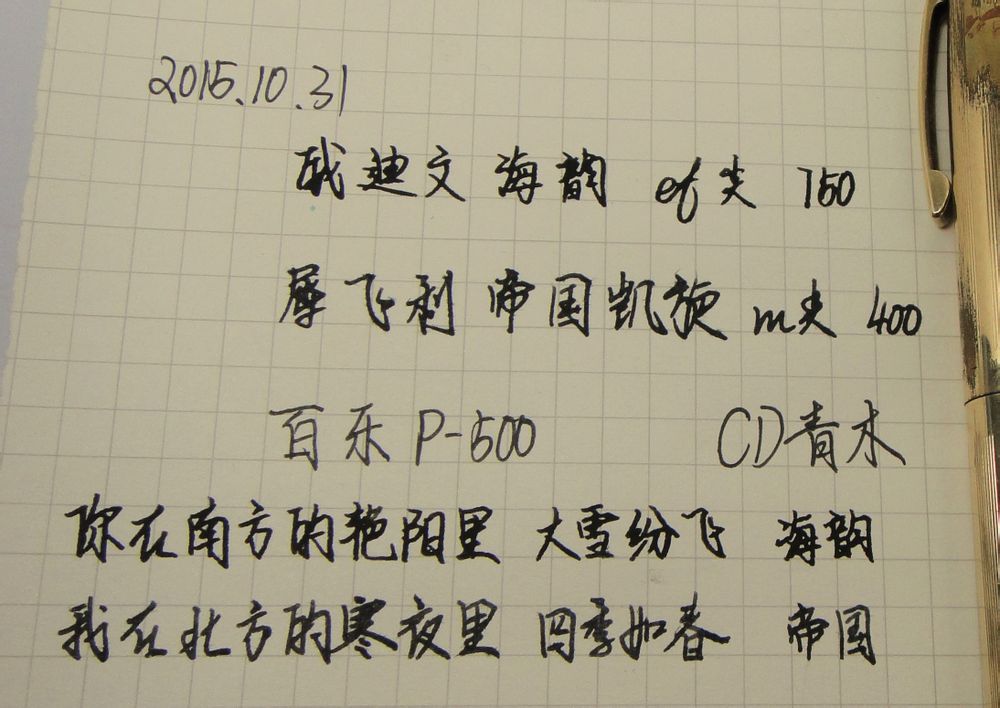 2015.10.31
戓迪文 海韵 ef尖 750
犀飞利 帝国凯旋 m尖 400
百乐 P-500 CD青木
你在南方的艳阳里 大雪纷飞 海韵
我在北方的寒夜里 四季如春 帝国